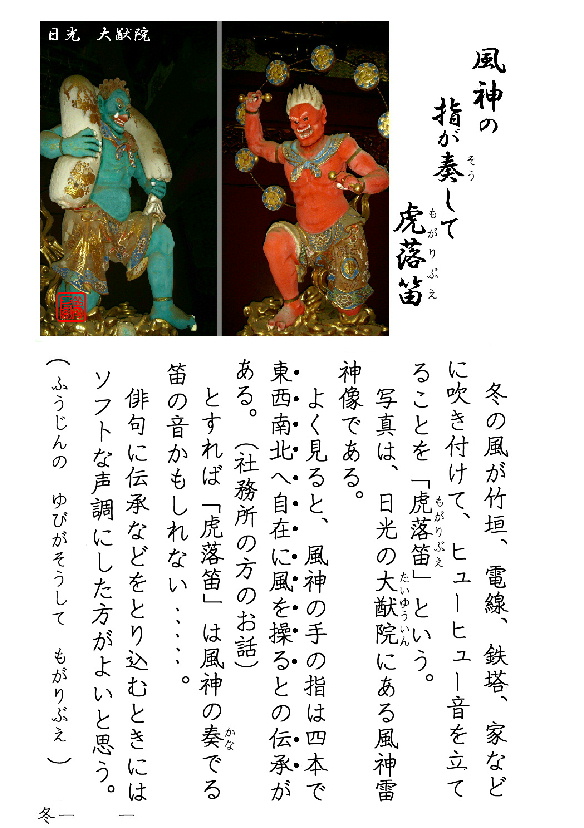 日光　大猷院
風神の
指が奏して
そう
虎落笛
もがりぶえ
冬の風が竹垣、電線、鉄塔、家など
に吹き付けて、ヒューヒュー音を立て
ることを「虎落笛」という。
もがりぶえ
写真は、日光の大猷院にある風神雷
たいゆういん
神像である。
よく見ると、風神の手の指は四本で
東西南北へ自在に風を操るとの伝承が
ある。（社務所の方のお話）
とすれば「虎落笛」は風神の奏でる
かな
笛の音かもしれない・・・・・。
俳句に伝承などをとり込むときには
ソフトな声調にした方がよいと思う。
（ふうじんの　ゆびがそうして　もがりぶえ）
冬一　　一